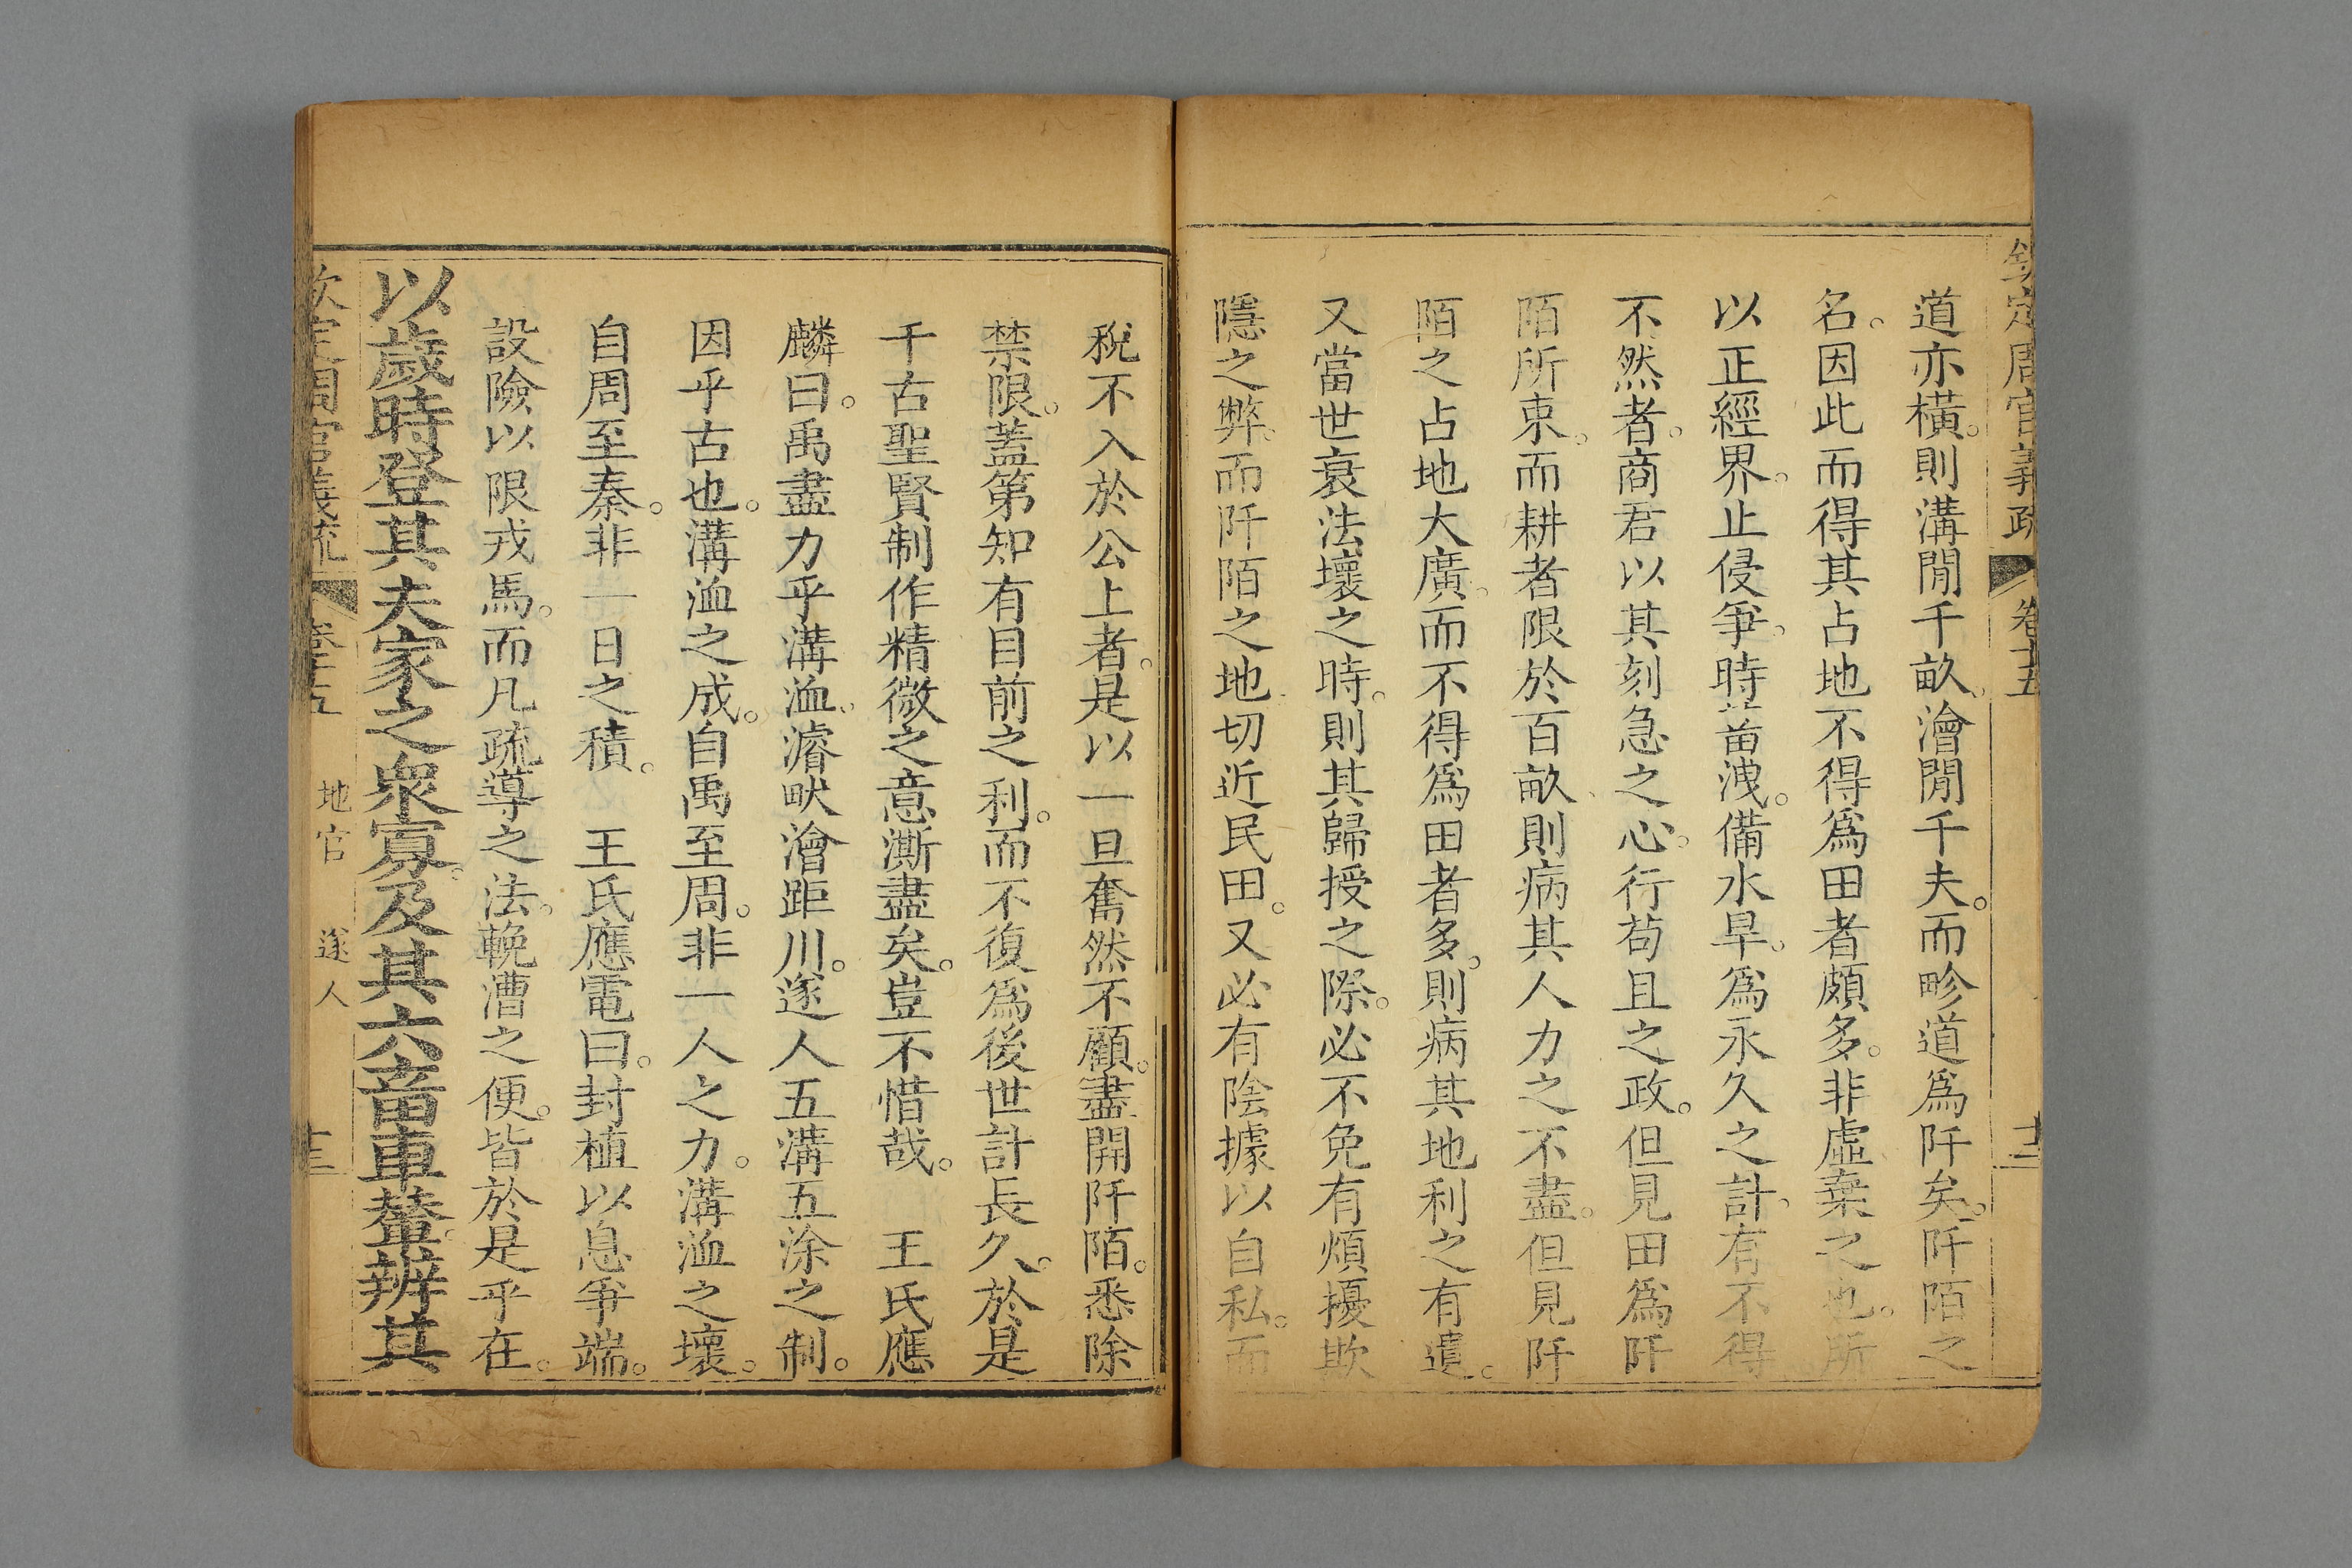 欽定周官義疏 卷十五 十二
道亦橫。則溝間千畝。澮間千夫。而畛道爲阡矣。阡陌之
名。因此而得其占地不得爲田者頗多。非虛棄之也。所
以正經界。止侵爭。時蓄洩。備水旱。爲永久之計。有不得
不然者。商君以其刻急之心。行苟且之政。但見田爲阡
陌所束。而耕者限於百畝。則病其人力之不盡。但見阡
陌之占地大廣。而不得爲田者多。則病其地利之有遺。
又當世衰法壞之時。則其歸授之際。必不免有煩擾欺
隱之弊。而阡陌之地切近民田。又必有陰據以自私。而
稅不入於公上者。是以一旦奮然不顧。盡開阡陌。悉除
禁限。蓋第知有目前之利。而不復爲後世計長久。於是
千古聖賢制作精微之意澌盡矣。豈不惜哉。 王氏應
麟曰。禹盡力乎溝洫。濬畎澮距川。遂人五溝五涂之制。
因乎古也。溝洫之成。自禹至周。非一人之力。溝洫之壞。
自周至秦。非一日之積。 王氏應電曰。封植以息爭端。
設險以限戎馬。而凡疏導之法。輓漕之便。皆於是乎在。
以歲時登其夫家之衆寡。及其六畜車輦。辨其
欽定周官義疏 卷十五 地官 遂人 十三